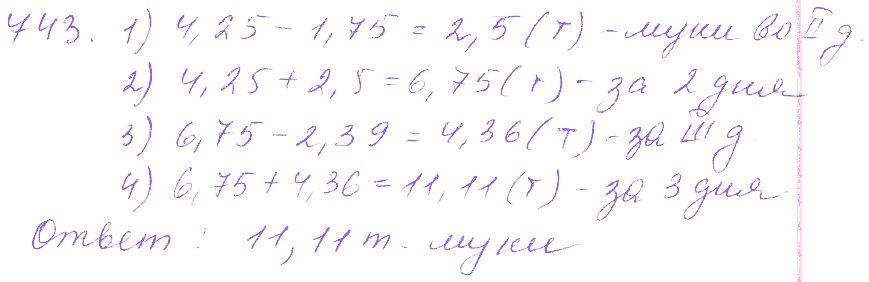 743. 1) 4,25 - 1,75 = 2,5 (т) - муки во II д.
2) 4,25 + 2,5 = 6,75 (т) - за 2 дня
3) 6,75 - 2,39 = 4,36 (т) - за III д
4) 6,75 + 4,36 = 11,11 (т) - за 3 дня
Ответ : 11,11 т. муки